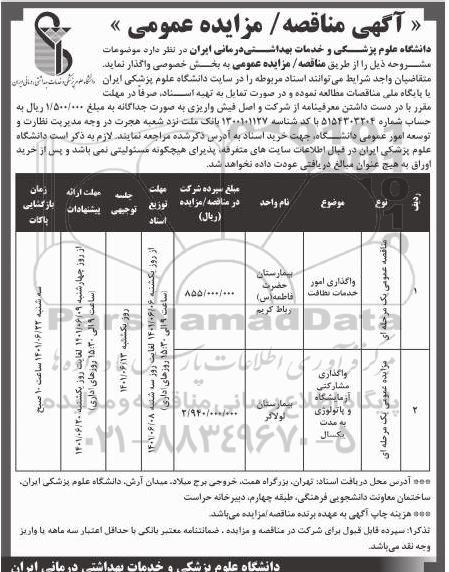 « آگهی مناقصه/ مزایده عمومی »
دانشگاه علوم پزشکی و خدمات بهداشتی درمانی ایران
دانشگاه علوم پزشکی و خدمات بهداشتی‌درمانی ایران در نظر دارد موضوعات
مشروحه ذیل را از طریق مناقصه/ مزایده عمومی به بخش خصوصی واگذار نماید.
متقاضیان واجد شرایط می‌توانند اسناد مربوطه را در سایت دانشگاه علوم پزشکی ایران
یا پایگاه ملی مناقصات مطالعه نموده و در صورت تمایل به تهیه اسناد، صرفا در مهلت
مقرر با در دست داشتن معرفینامه از شرکت و اصل فیش واریزی به صورت جداگانه به مبلغ ۱/۵۰۰/۰۰۰ ریال به
حساب شماره ۵۱۵۴۳۰۳۲۰۴ با کد شناسه ۱۳۰۰۱۰۱۱۲۷ بانک ملت نزد شعبه هجرت در وجه مدیریت نظارت و
توسعه امور عمومی دانشگاه، جهت خرید اسناد به آدرس ذکرشده مراجعه نمایند. لازم به ذکر است دانشگاه
علوم پزشکی ایران در قبال اطلاعات سایت های متفرقه، پذیرای هیچگونه مسئولیتی نمی باشد و پس از خرید
اوراق به هیچ عنوان مبالغ دریافتی عودت داده نخواهد شد.
ردیف
نوع
موضوع
نام واحد
مبلغ سپرده شرکت در مناقصه/مزایده (ریال)
مهلت توزیع اسناد
جلسه توجیهی
مهلت ارائه پیشنهادات
زمان بازگشایی پاکات
۱
مناقصه عمومی یک مرحله ای
واگذاری امور خدمات نظافت
بیمارستان حضرت فاطمه(س) رباط کریم
۸۵۵/۰۰۰/۰۰۰
از روز یکشنبه ۱۴۰۱/۰۶/۰۶ لغایت روز سه شنبه ۱۴۰۱/۰۶/۰۸
(ساعت ۹ الی ۱۵:۳۰ روزهای اداری)
روز یکشنبه ۱۴۰۱/۰۶/۱۳
از روز چهارشنبه ۱۴۰۱/۰۶/۰۹ لغایت روز یکشنبه ۱۴۰۱/۰۶/۲۰
(ساعت ۹ الی ۱۵:۳۰ روزهای اداری)
سه شنبه ۱۴۰۱/۰۶/۲۲ ساعت ۱۰ صبح
۲
مزایده عمومی یک مرحله ای
واگذاری مشارکتی آزمایشگاه و پاتولوژی به مدت یکسال
بیمارستان لولاگر
۲/۹۴۰/۰۰۰/۰۰۰
ParsNamadData
مرکز فرآوری اطلاعات پارس نماد داده ها
پایگاه اطلاع رسانی مناقصه و مزایده
۰۲۱-۸۸۳۴۹۶۷۰-۵
*** آدرس محل دریافت اسناد: تهران، بزرگراه همت، خروجی برج میلاد، میدان آرش، دانشگاه علوم پزشکی ایران،
ساختمان معاونت دانشجویی فرهنگی، طبقه چهارم، دبیرخانه حراست
*** هزینه چاپ آگهی به عهده برنده مناقصه/مزایده می‌باشد.
تذکر۱: سپرده قابل قبول برای شرکت در مناقصه و مزایده ، ضمانتنامه معتبر بانکی با حداقل اعتبار سه ماهه یا واریز
وجه نقد می‌باشد.
دانشگاه علوم پزشکی و خدمات بهداشتی درمانی ایران